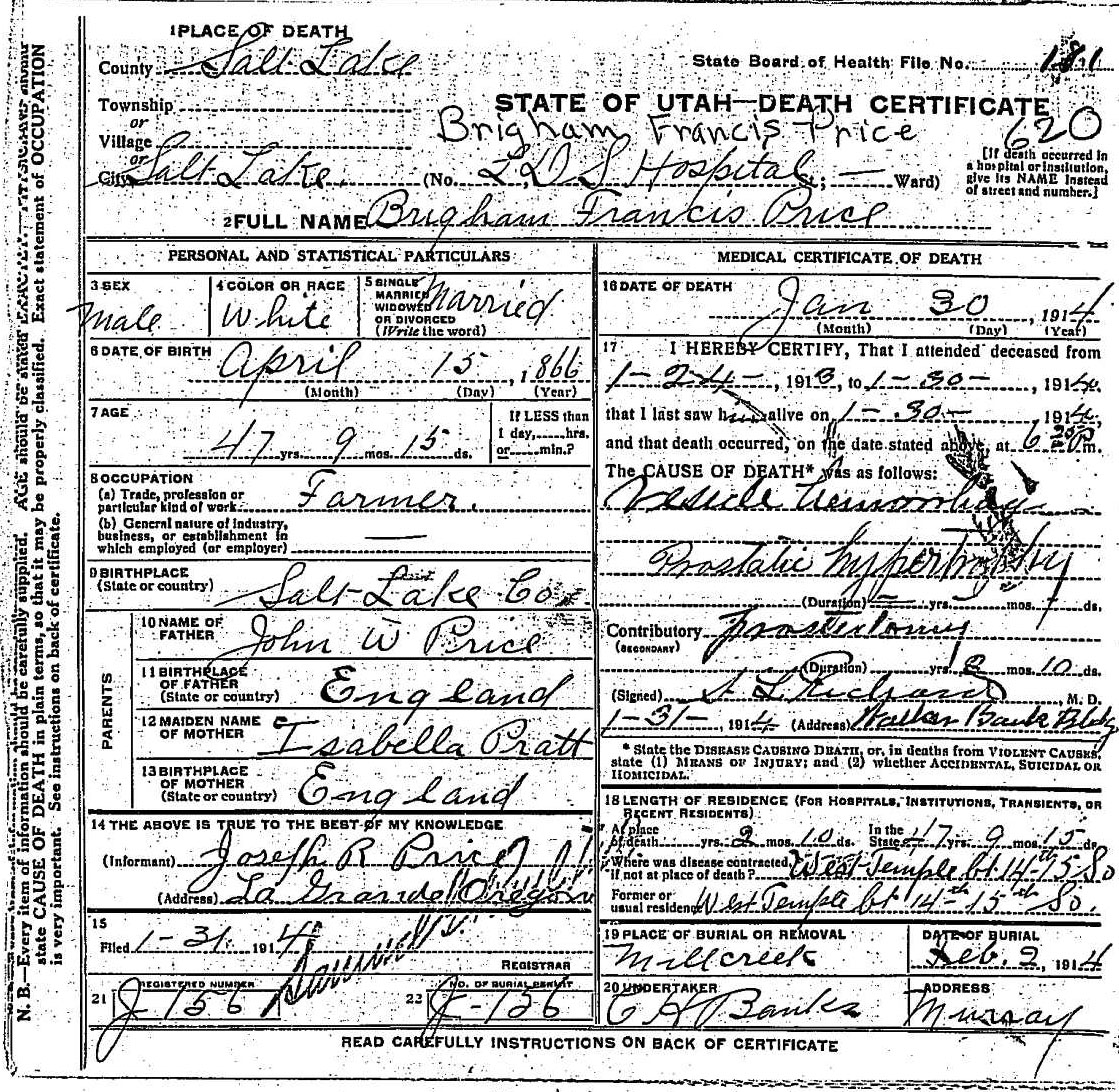 1 PLACE OF DEATH
County Salt Lake
State Board of Health File No. 181
Township
or
Village
or
City Salt Lake.
STATE OF UTAH—DEATH CERTIFICATE
Brigham Francis Price 620
(No. L.D.S Hospital; — Ward)
[If death occurred in
a hospital or institution,
give its NAME instead
of street and number.]
2 FULL NAME Brigham Francis Price
PERSONAL AND STATISTICAL PARTICULARS
3 SEX
Male
4 COLOR OR RACE
White
5 SINGLE
MARRIED
WIDOWED
OR DIVORCED
(Write the word)
Married
6 DATE OF BIRTH
April 15, 1866
(Month) (Day) (Year)
7 AGE
47 yrs. 9 mos. 15 ds.
If LESS than
1 day,......hrs.
or......min.?
8 OCCUPATION
(a) Trade, profession or
particular kind of work Farmer.
(b) General nature of industry,
business, or establishment in
which employed (or employer) —
9 BIRTHPLACE
(State or country)
Salt Lake Co.
PARENTS
10 NAME OF
FATHER
John W Price
11 BIRTHPLACE
OF FATHER
(State or country)
England
12 MAIDEN NAME
OF MOTHER
Isabella Pratt
13 BIRTHPLACE
OF MOTHER
(State or country)
England
14 THE ABOVE IS TRUE TO THE BEST OF MY KNOWLEDGE
(Informant) Joseph R Price
(Address) La Grande Oregon
15
Filed 1-31. 1914
REGISTRAR
21 REGISTERED NUMBER
J-156
22 NO. OF BURIAL PERMIT
J-156
MEDICAL CERTIFICATE OF DEATH
16 DATE OF DEATH
Jan 30, 1914
(Month) (Day) (Year)
17 I HEREBY CERTIFY, That I attended deceased from
1-24-, 1913, to 1-30-, 1914,
that I last saw him alive on 1-30- 1914,
and that death occurred, on the date stated above, at 6 P m.
The CAUSE OF DEATH* was as follows:
Hemorrhage
Prostatic hypertrophy
(Duration) — yrs. mos. 7 ds.
Contributory
(SECONDARY)
(Duration) yrs. 2 mos. 10 ds.
(Signed) Richards, M. D.
1-31-, 1914 (Address) Walker Bank Bldg
* State the DISEASE CAUSING DEATH, or, in deaths from VIOLENT CAUSES,
state (1) MEANS OF INJURY; and (2) whether ACCIDENTAL, SUICIDAL OR
HOMICIDAL.
18 LENGTH OF RESIDENCE (FOR HOSPITALS, INSTITUTIONS, TRANSIENTS, OR
RECENT RESIDENTS)
At place
of death yrs. 2 mos. 10 ds.
In the
State 47 yrs. 9 mos. 15 ds.
Where was disease contracted,
if not at place of death? West Temple bt 14-15th So
Former or
usual residence West Temple bt 14th-15th So.
19 PLACE OF BURIAL OR REMOVAL
Millcreek
DATE OF BURIAL
Feb. 2, 1914
20 UNDERTAKER
C H Banks
ADDRESS
Murray
READ CAREFULLY INSTRUCTIONS ON BACK OF CERTIFICATE
N. B.—Every item of information should be carefully supplied. AGE should be stated EXACTLY. PHYSICIANS should
state CAUSE OF DEATH in plain terms, so that it may be properly classified. Exact statement of OCCUPATION
is very important. See instructions on back of certificate.